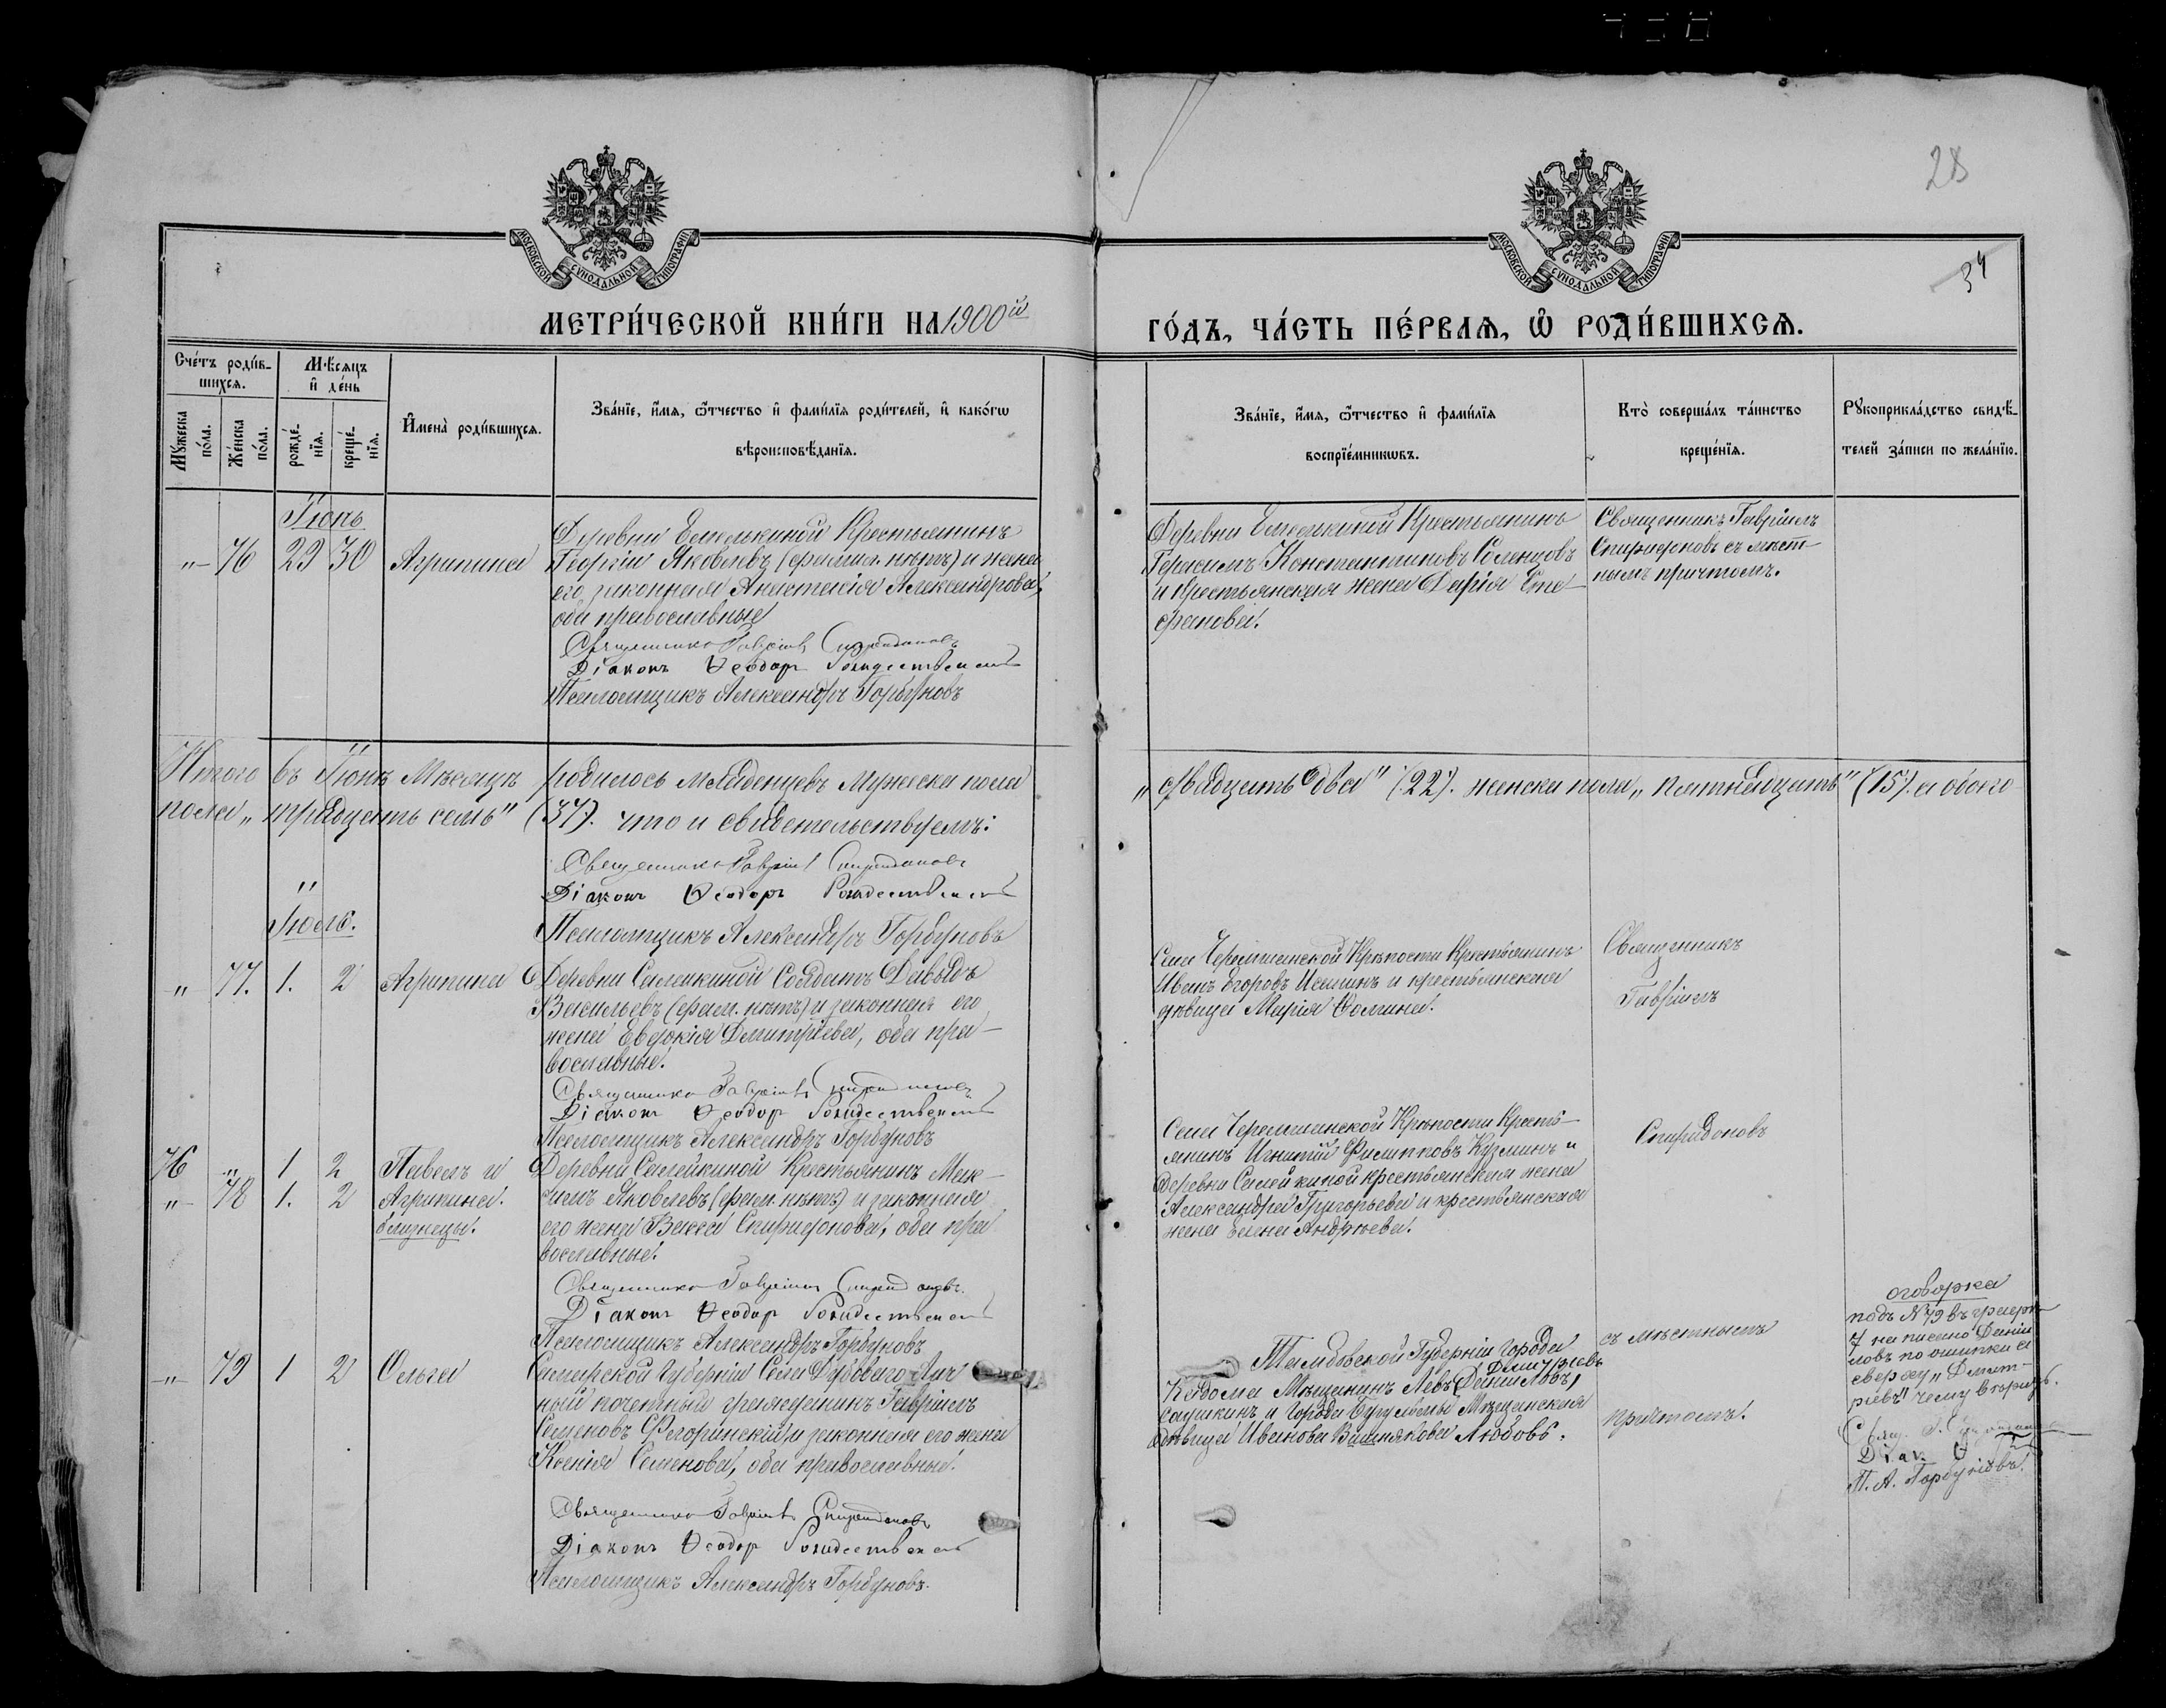 28
34
МОСКОВСКОЙ СУНОДАЛЬНОЙ ТИПОГРАФІИ
МОСКОВСКОЙ СУНОДАЛЬНОЙ ТИПОГРАФІИ
МЕТРИ́ЧЕСКОЙ КНИ́ГИ НА 1900й
ГО́ДЪ, ЧА́СТЬ ПЕ́РВАѦ, Ѡ҆ РОДИ́ВШИХСѦ.
Сче́тъ роди́в-
шихсѧ.
Мꙋ́жеска по́ла.
Же́нска по́ла.
Мѣ́сѧцъ и҆ де́нь
рожде́-нїѧ.
креще́-нїѧ.
И҆мена̀ роди́вшихсѧ.
Зва́нїе, и҆́мѧ, ѻ҆́тчество и҆ фами́лїѧ роди́телей, и҆ како́гѡ
вѣроисповѣ́данїѧ.
Зва́нїе, и҆́мѧ, ѻ҆́тчество и҆ фами́лїѧ
воспрїе́мникѡвъ.
Кто̀ соверша́лъ та́инство
креще́нїѧ.
Рꙋкоприкла́дство свидѣ́-
телей за́писи по жела́нїю.
Іюнь
"– 76 29 30 Агрипина
Деревни Емелькиной Крестьянинъ
Георгій Яковлевъ (фамил. нѣтъ) и жена
его законная Анастасія Александрова,
оба православные
Священникъ Гавріилъ Спиридоновъ
Діаконъ Ѳеодоръ Рождественскій
Псаломщикъ Александръ Горбуновъ
Деревни Емелькиной Крестьянинъ
Герасимъ Константиновъ Соленцовъ
и крестьянская жена Дарія Сте-
фанова.
Священникъ Гавріилъ
Спиридоновъ съ мѣст-
нымъ причтомъ.
Итого въ Іюнѣ Мѣсяцѣ родилось младенцевъ мужеска пола „двадцать два" (22). женска пола „пятнадцать" (15). а обоего
пола „тридцать семь" (37). что и свидетельствуемъ:
Священникъ Гавріилъ Спиридоновъ
Діаконъ Ѳеодоръ Рождественскій
Псаломщикъ Александръ Горбуновъ
Іюль.
" 77. 1. 2 Агрипина
Деревни Салейкиной Солдатъ Давыдъ
Васильевъ (фам. нѣтъ) и законная его
жена Евдокія Дмитріева, оба пра-
вославные.
Священникъ Гавріилъ Спиридоновъ
Діаконъ Ѳеодоръ Рождественскій
Псаломщикъ Александръ Горбуновъ
Села Черемшанской Крѣпости Крестьянинъ
Иванъ Егоровъ и крестьянская
дѣвица Марія Ѳомина.
Священникъ
Гавріилъ
76 " 1 2 Павелъ и
"– 78 1. 2 Агрипина.
близнецы.
Деревни Салейкиной Крестьянинъ Мак-
симъ Яковлевъ (фам. нѣтъ) и законная
его жена Васса Спиридонова, оба пра
вославные.
Священникъ Гавріилъ Спиридоновъ.
Діаконъ Ѳеодоръ Рождественскій
Псаломщикъ Александръ Горбуновъ
Села Черемшанской Крѣпости Кресть-
янинъ Игнатій Филипповъ Кузминъ и
деревни Салейкиной крестьянская жена
Александра Григорьева и крестьянская
жена Елена Андрѣева.
Спиридоновъ
–"– 79 1 2 Ольга
Самарской Губерніи Села Дубоваго Лич
ный почетный гражданинъ Гавріилъ
Семеновъ и законная его жена
Ксенія Семенова, оба православные.
Священникъ Гавріилъ Спиридоновъ
Діаконъ Ѳеодоръ Рождественскій
Псаломщикъ Александръ Горбуновъ.
Тамбовской Губерніи Города
Дмитріевъ
Кадома Мѣщанинъ Левъ Даниловъ,
Саушкинъ и Города Бугульмы Мѣщанская
дѣвица Иванова Вишнякова Любовь.
съ мѣстнымъ
причтомъ.
оговорка
подъ №79 въ графѣ
7 написано Дани
ловъ по ошибкѣ а
сверху „Дмит-
ріевъ" чему вѣрить.
Свящ. Г. Спиридоновъ
Діак. Ѳ
П. А. Горбуновъ.